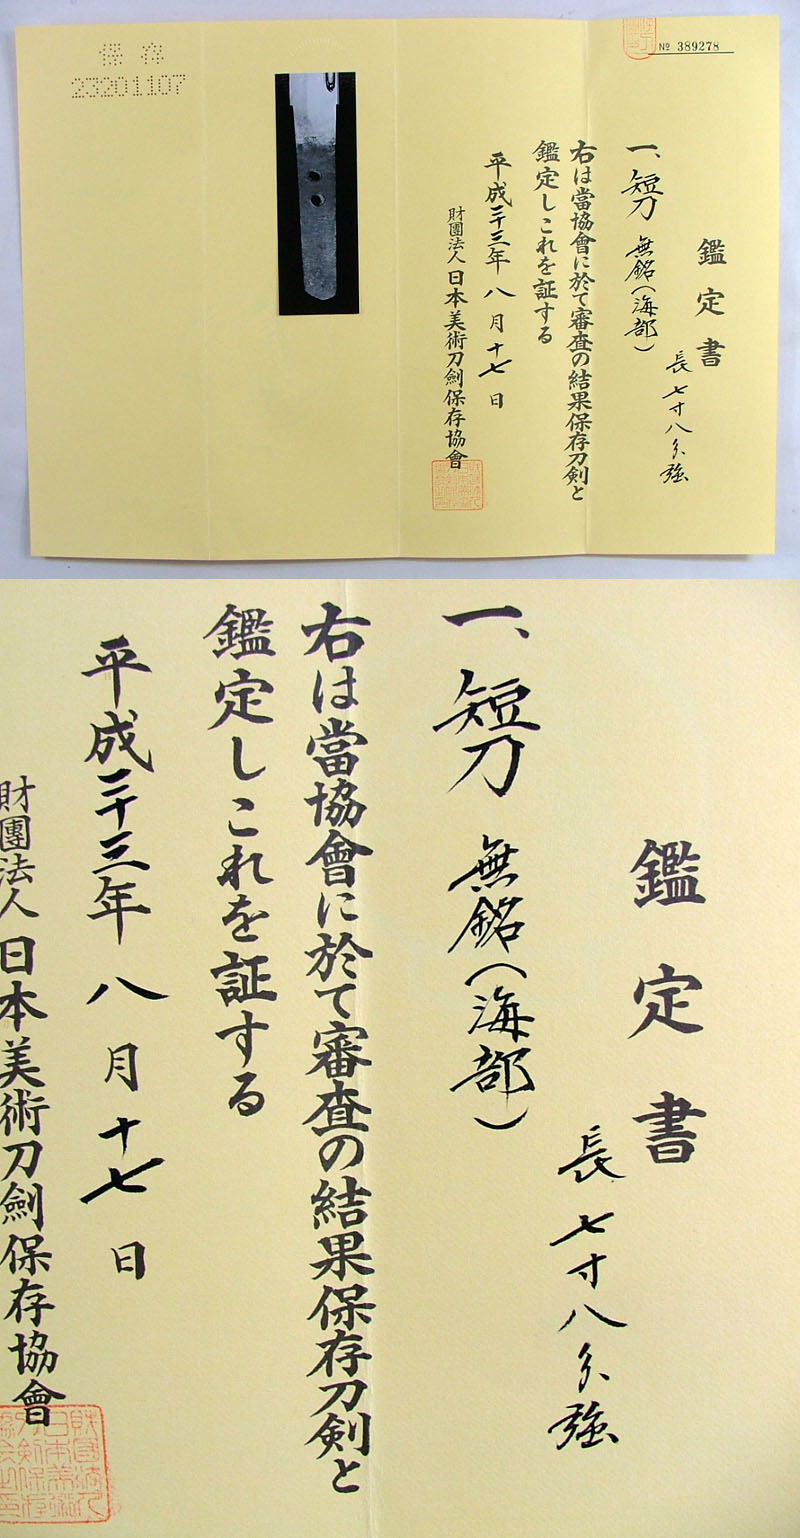 保存
23201107
№ 389278
鑑定書
一、短刀 無銘(海部)
長七寸八分強
右は當協會に於て審査の結果保存刀剣と
鑑定しこれを証する
平成二十三年八月十七日
財團法人日本美術刀劍保存協會
鑑定書
一、短刀 無銘(海部)
長七寸八分強
右は當協會に於て審査の結果保存刀剣と
鑑定しこれを証する
平成二十三年八月十七日
財團法人日本美術刀劍保存協會